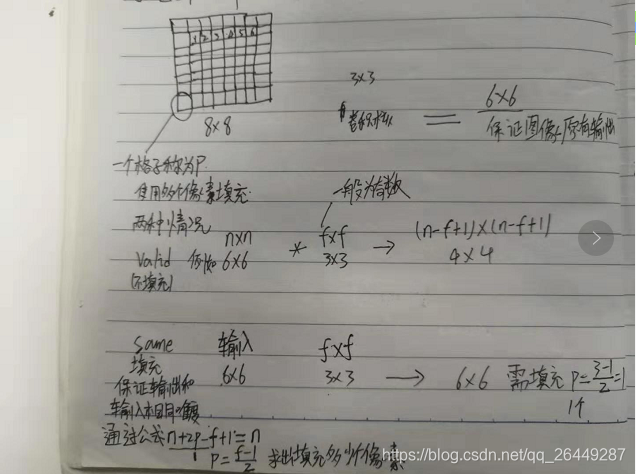 1 2 3 4 5 6
8×8
3×3
=
6×6
保证图像原有输出
一个格子称为P.
使用多个像素填充.
两种情况
一般为奇数
n×n * f×f → (n-f+1)×(n-f+1)
Valid 例如 6×6 3×3 4×4
(不填充)
Same 输入 f×f
填充 6×6 3×3 → 6×6 需填充 P=\frac{3-1}{2}=1
保证输出和 1个
输入相同
通过公式 n+2p-f+1=n
P=\frac{f-1}{2} 求出填充多少像素
https://blog.csdn.net/qq_26449287